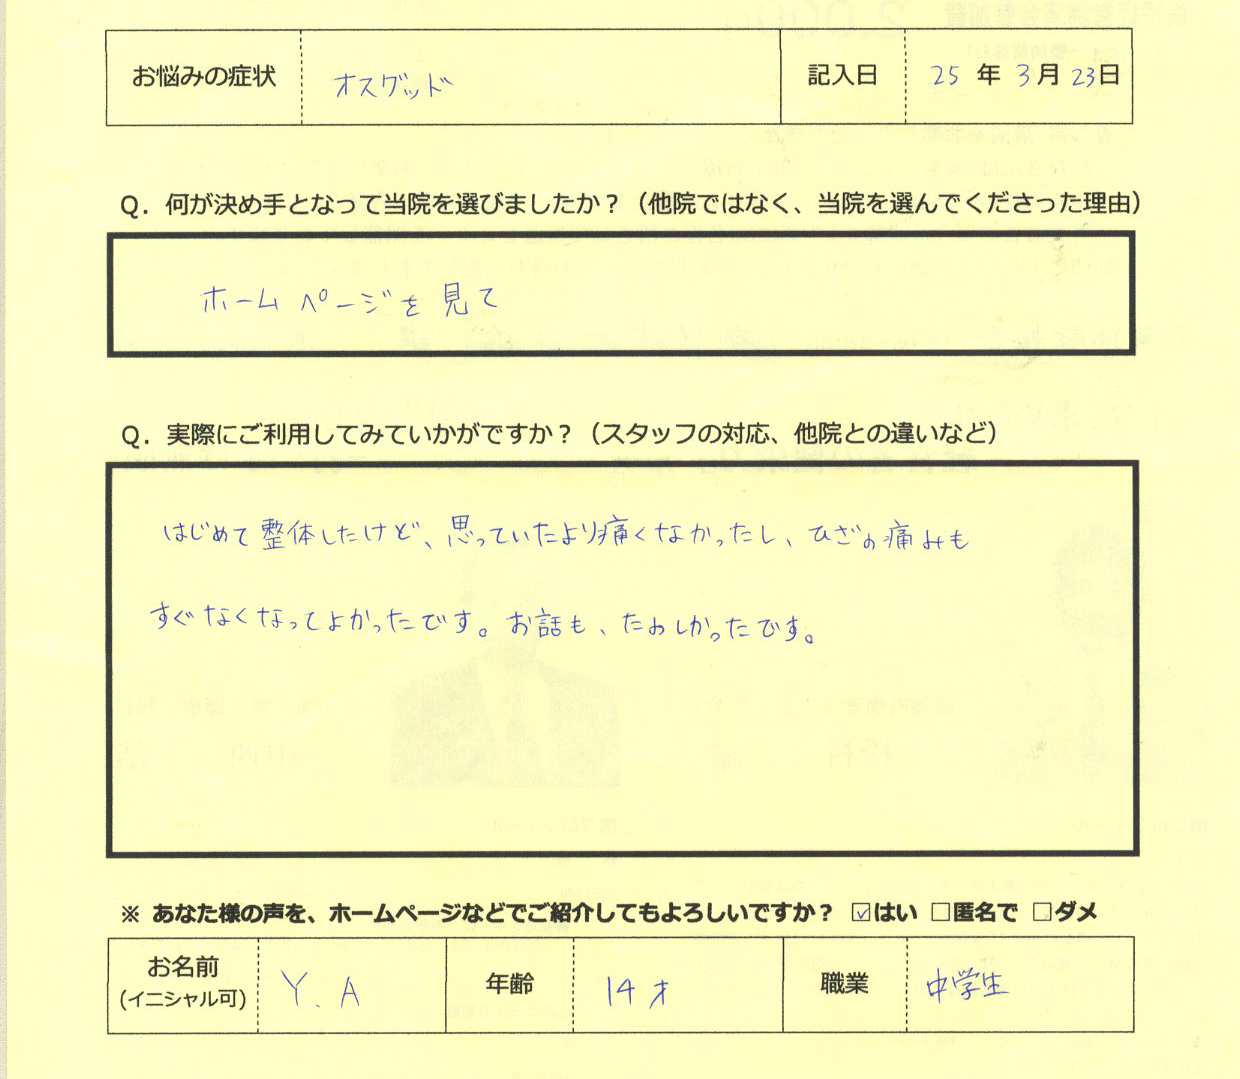 お悩みの症状 オスグッド 記入日 25年3月23日
Q．何が決め手となって当院を選びましたか？（他院ではなく、当院を選んでくださった理由）
ホームページを見て
Q．実際にご利用してみていかがですか？（スタッフの対応、他院との違いなど）
はじめて整体したけど、思っていたより痛くなかったし、ひざの痛みも
すぐなくなってよかったです。お話も、たのしかったです。
※ あなた様の声を、ホームページなどでご紹介してもよろしいですか？ ☑はい □匿名で □ダメ
お名前 (イニシャル可) Y.A 年齢 14才 職業 中学生